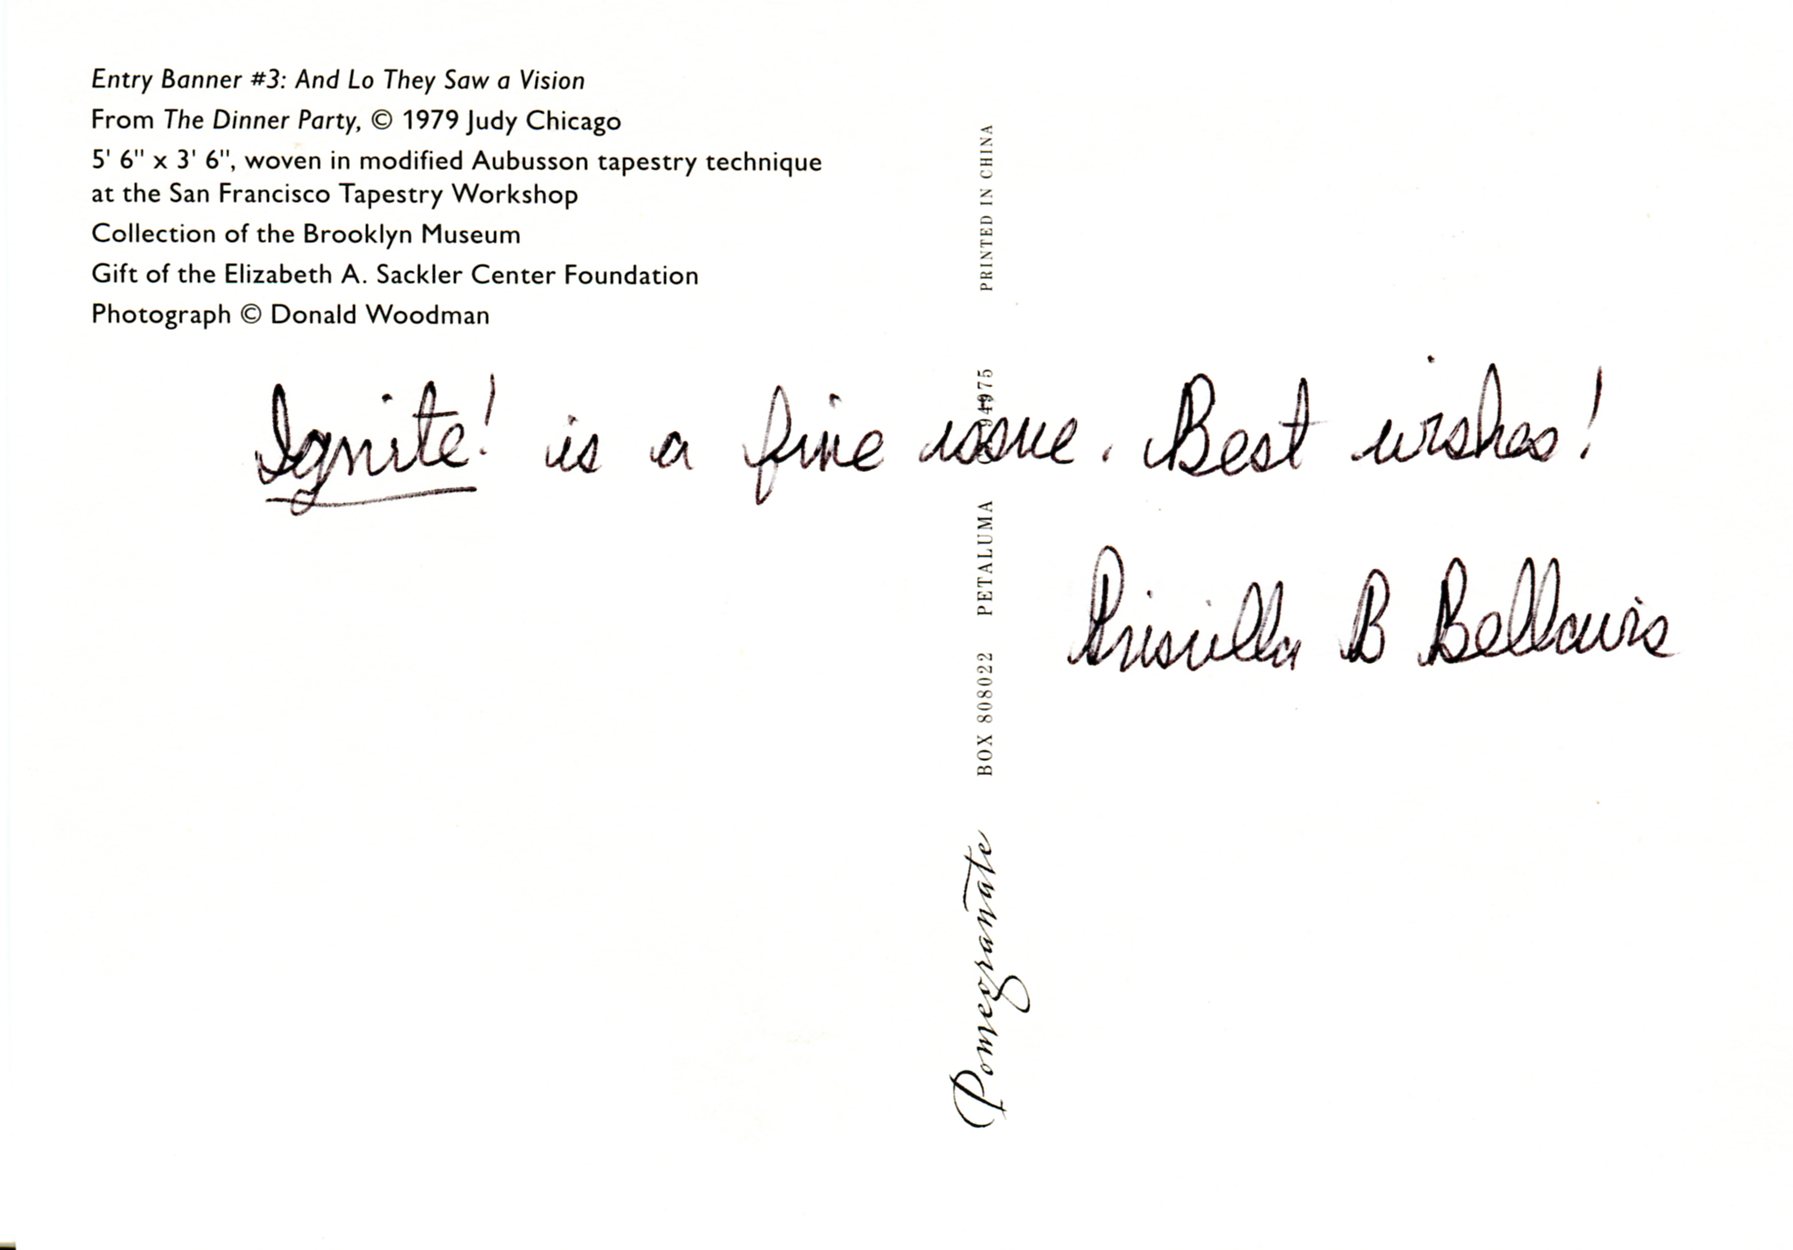 Entry Banner #3: And Lo They Saw a Vision
From The Dinner Party, © 1979 Judy Chicago
5' 6" x 3' 6", woven in modified Aubusson tapestry technique
at the San Francisco Tapestry Workshop
Collection of the Brooklyn Museum
Gift of the Elizabeth A. Sackler Center Foundation
Photograph © Donald Woodman
Ignite! is a fine issue. Best wishes!
Priscilla B Bellairs
Pomegranate BOX 808022 PETALUMA CA 94975 PRINTED IN CHINA